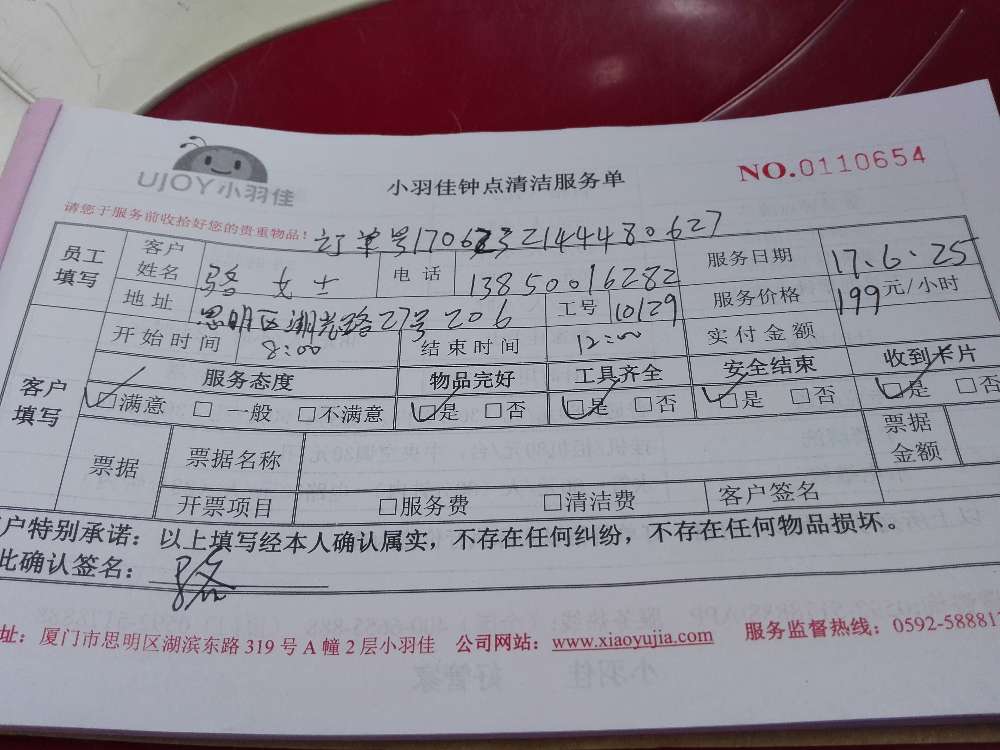 UJOY小羽佳
小羽佳钟点清洁服务单
NO.0110654
请您于服务前收拾好您的贵重物品!
订单号17062321444480627
员工填写 客户姓名 骆女士 电话 13850016282 服务日期 17.6.25
地址 思明区湖光路27号206 工号 10129 服务价格 199元/小时
开始时间 8:00 结束时间 12:00 实付金额
客户填写 服务态度 物品完好 工具齐全 安全结束 收到卡片
☑满意 □一般 □不满意 ☑是 □否 ☑是 □否 ☑是 □否 ☑是 □否
票据 票据名称 票据金额
开票项目 □服务费 □清洁费 客户签名
户特别承诺:以上填写经本人确认属实,不存在任何纠纷,不存在任何物品损坏。
此确认签名:
址:厦门市思明区湖滨东路319号A幢2层小羽佳 公司网站:www.xiaoyujia.com 服务监督热线:0592-588881